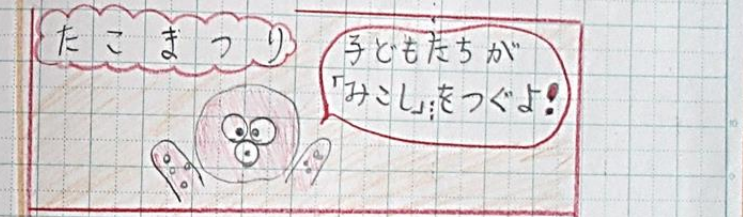 たこまつり
子どもたちが
「みこし」をつぐよ!